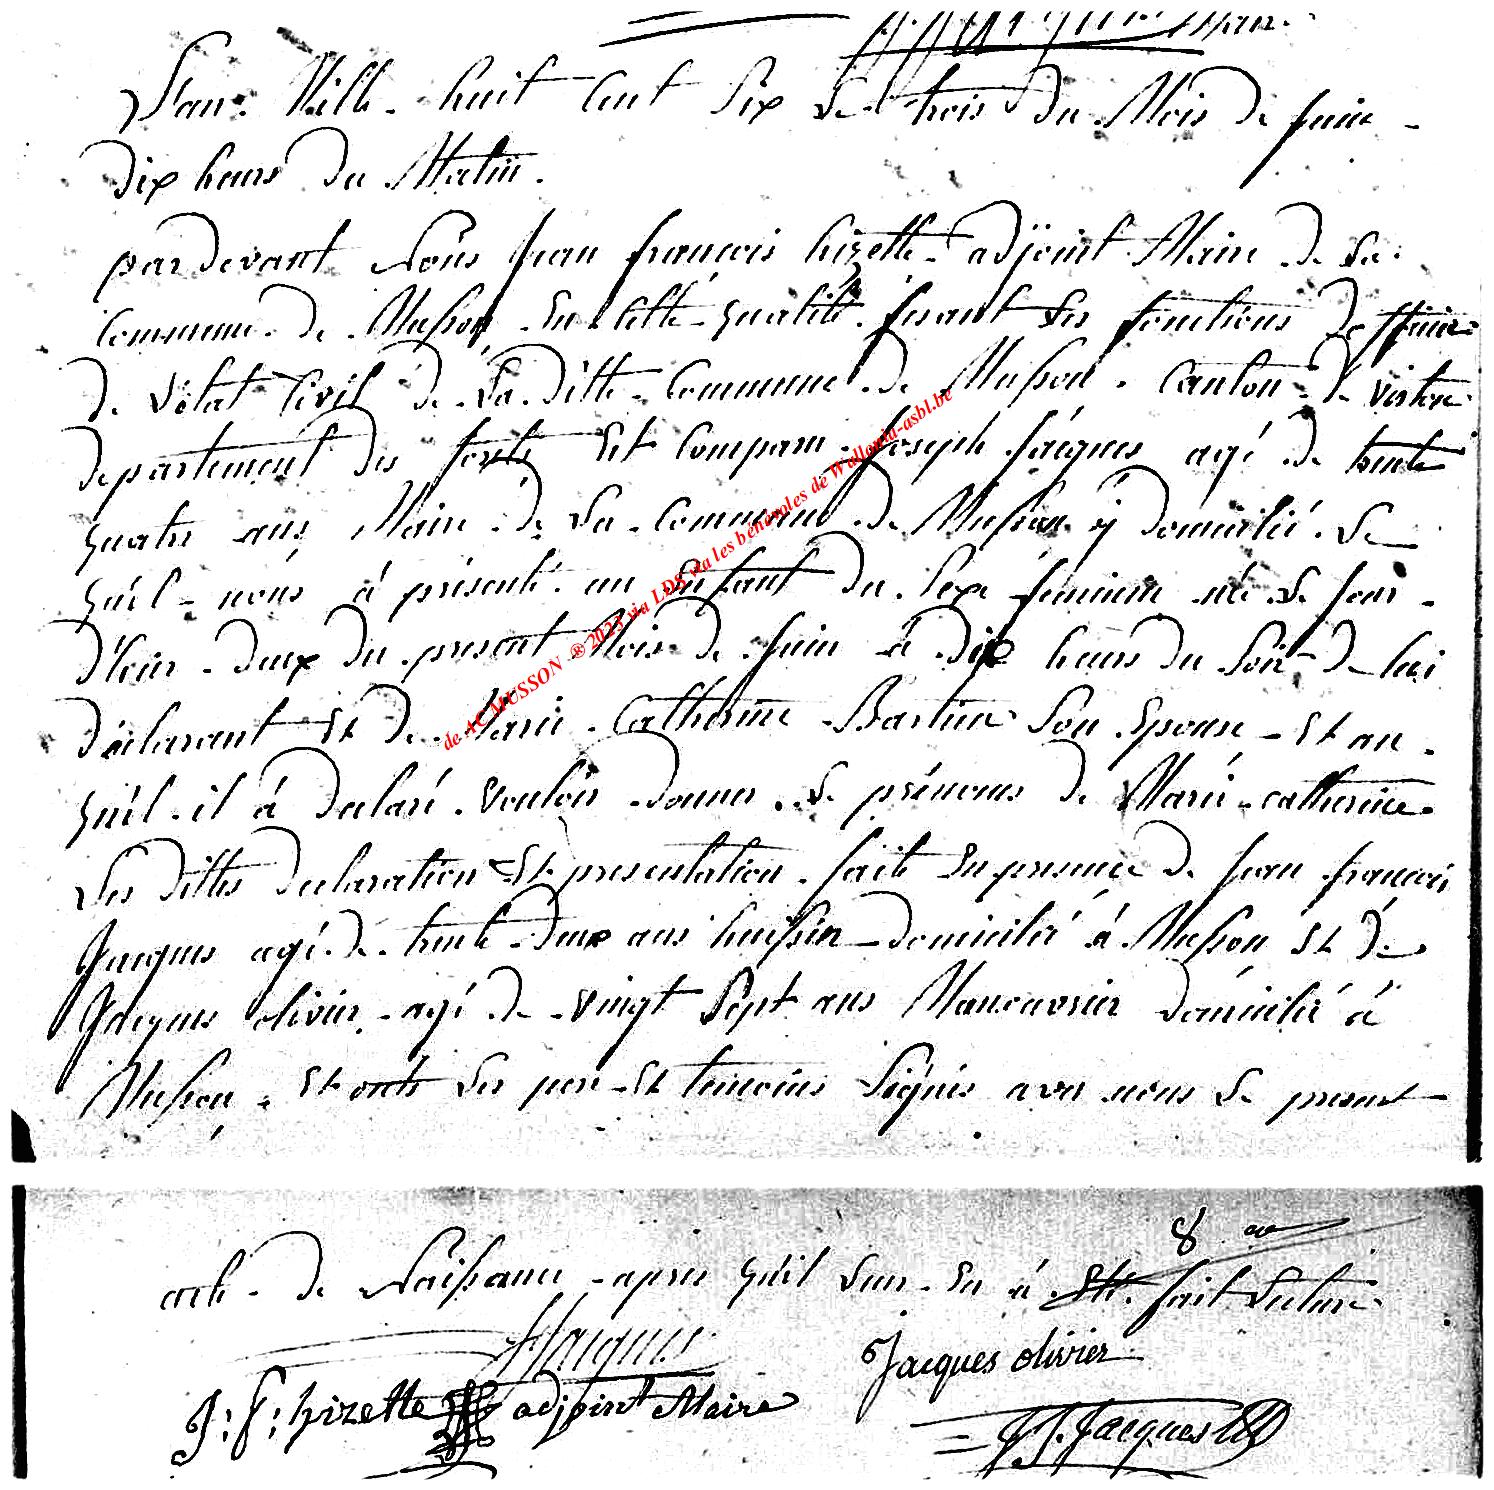 L'an Mille huit Cent Six Le trois du Mois de juin
dix heurs du Matin.
pardevant Nous jean françois hizette adjoint Maire de La
Commune de Musson en cette qualité fesant les fonctions
de L'état Civil de La ditte Commune de Musson. Canton de virton
departement des forêts Est Comparu joseph jacques agé de trente
quatre ans Maire de La Commune de Musson y domicilié Le
quel nous à présenté un Enfant du Sexe féminin née Le jour
d'hier deux du present Mois de juin à dix heurs du Soir de lui
déclarant Et de Marie Catherine Epouse Et au
quel il à declaré vouloir donner Le prénoms de Marie catherine
Les dittes declaration Et presentation faite En presence de jean françois
Jacques agé de trente deux ans huissier domicilié à Musson Et de
Jacques olivier agé de vingt Sept ans Manoeuvrier domicilié à
Musson Et onts Les pere Et temoins Signés avec nous Le present
acte de Naissance apres qu'il Leur En à Eté fait Lecture
Jacques
Jacques olivier
J: f: hizette adjoint Maire
J f. Jacques
de ACMUSSON ® 2023 via LDS via les bénévoles de Wallonia-asbl.be